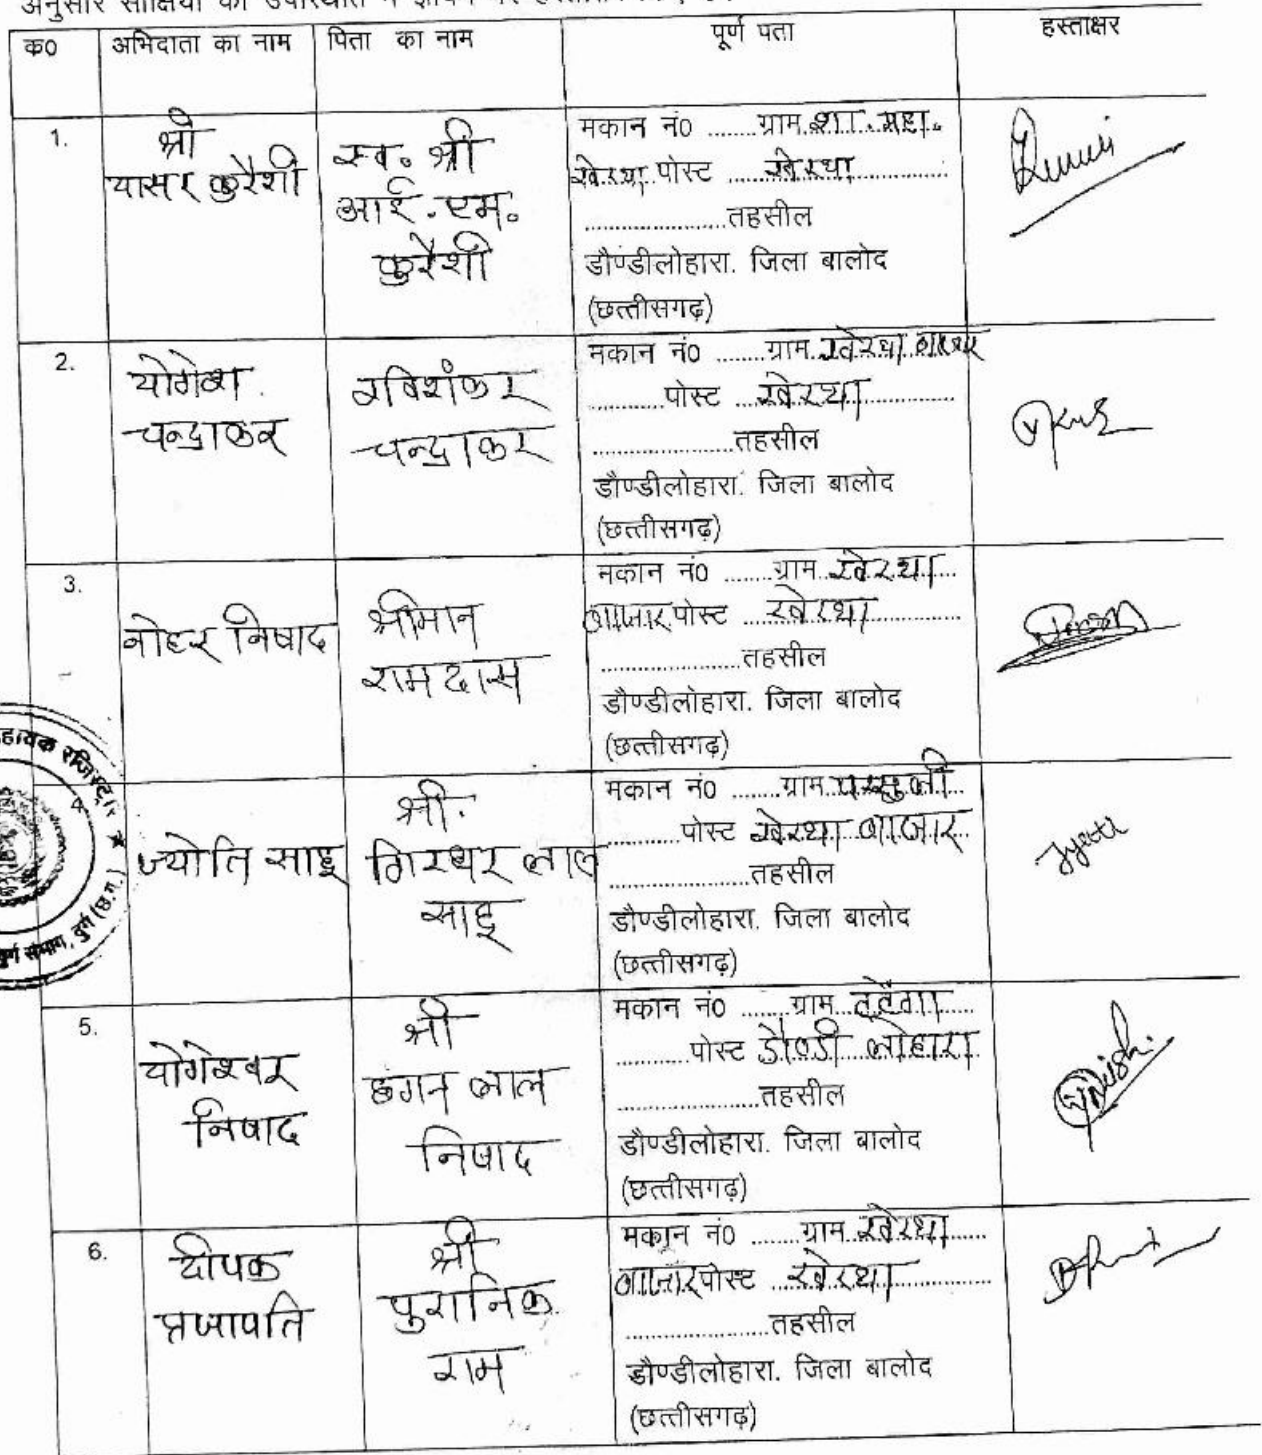 अनुसार साक्षियों की उपस्थिति में ज्ञापन पर हस्ताक्षर
क0 अभिदाता का नाम पिता का नाम पूर्ण पता हस्ताक्षर
1. श्री यासर कुरैशी स्व. श्री आई. एम. कुरैशी
मकान नं0 ........ग्राम. शा. महा.
खेरथा पोस्ट ....खेरथा..............
........................तहसील
डौण्डीलोहारा. जिला बालोद
(छत्तीसगढ़)
2. योगेश चन्द्राकर रविशंकर चन्द्राकर
मकान नं0 ........ग्राम. खेरथा बाजार
............पोस्ट ...खेरथा..............
........................तहसील
डौण्डीलोहारा. जिला बालोद
(छत्तीसगढ़)
3. नोहर निषाद श्रीमान रामदास
मकान नं0 ........ग्राम. खेरथा...
बाजार पोस्ट ...खेरथा..............
........................तहसील
डौण्डीलोहारा. जिला बालोद
(छत्तीसगढ़)
4. ज्योति साहू श्री. गिरधर लाल साहू
मकान नं0 ........ग्राम..
............पोस्ट खेरथा बाजार.
........................तहसील
डौण्डीलोहारा. जिला बालोद
(छत्तीसगढ़)
Jyoti
रजिस्ट्रार
दुर्ग संभाग, दुर्ग (छ.ग.)
5. योगेश्वर निषाद श्री छगन लाल निषाद
मकान नं0 ........ग्राम..
............पोस्ट डौण्डी लोहारा
........................तहसील
डौण्डीलोहारा. जिला बालोद
(छत्तीसगढ़)
6. दीपक प्रजापति श्री पुरानिक राम
मकान नं0 ........ग्राम. खेरथा......
बाजार पोस्ट ...खेरथा..............
........................तहसील
डौण्डीलोहारा. जिला बालोद
(छत्तीसगढ़)